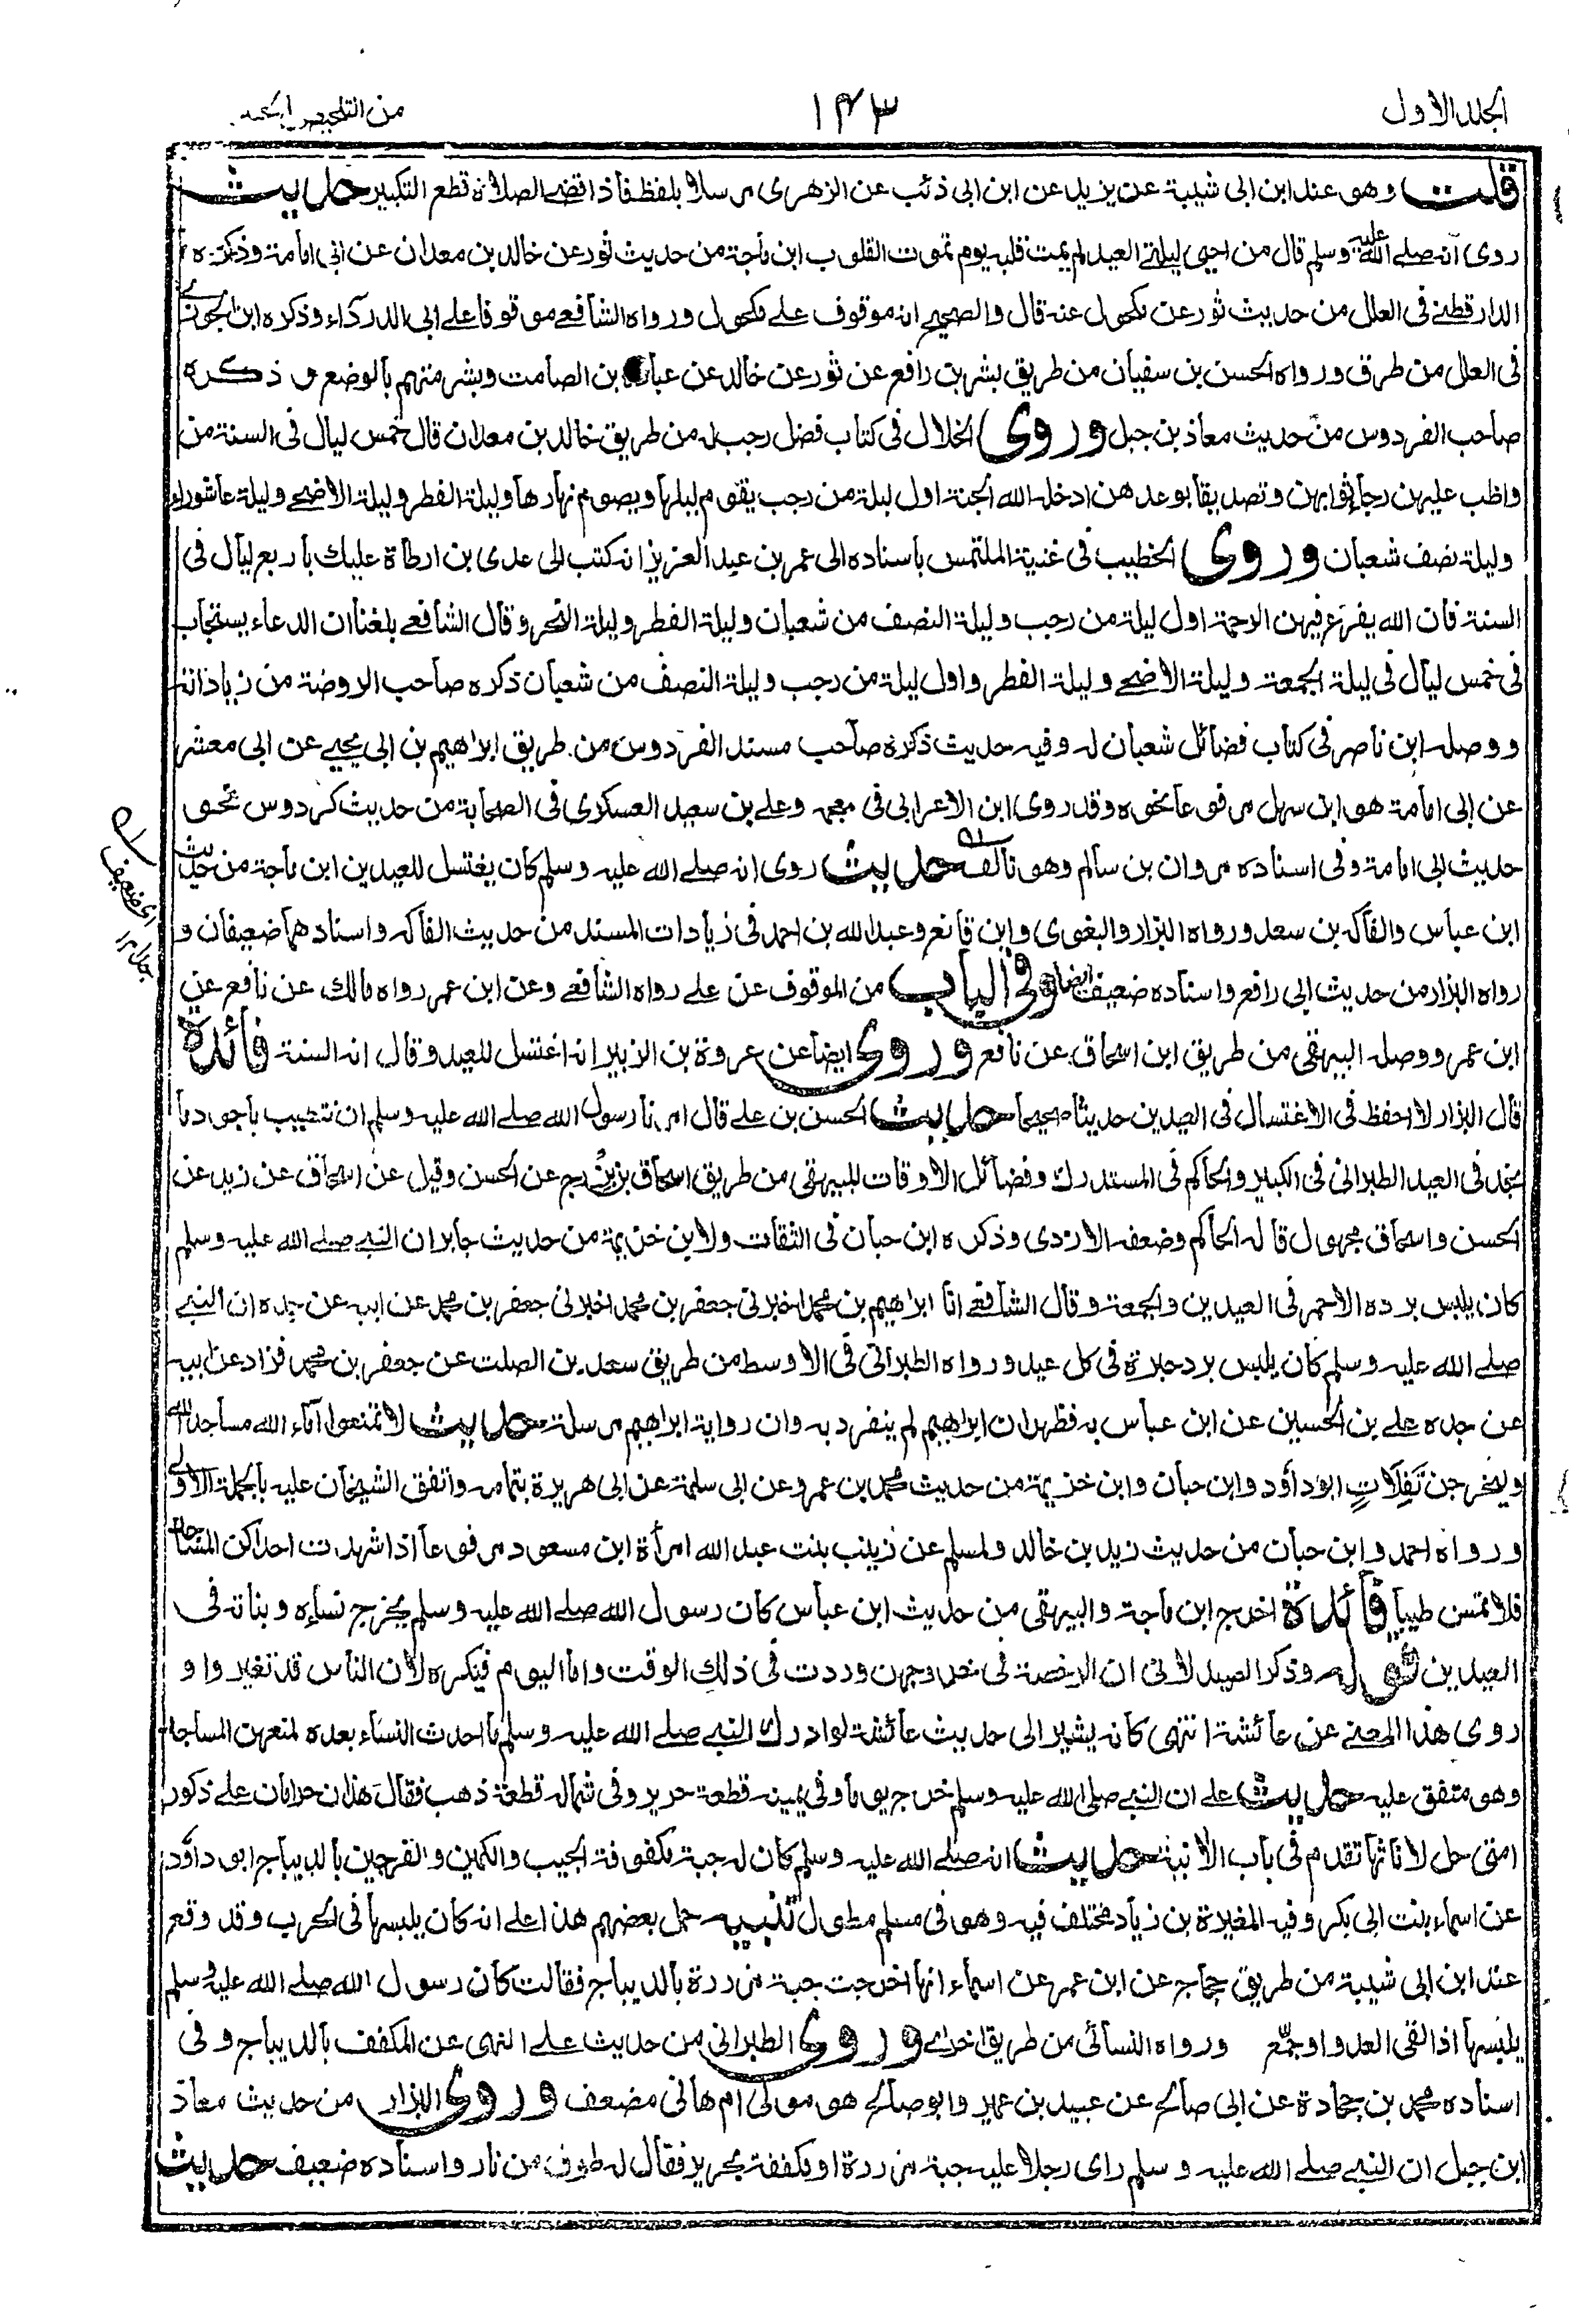 الجلد الاول
١٤٣
من التلخيص الحبير
قلت وهو عند ابن ابى شيبة عن يزيد عن ابن ابى ذئب عن الزهرى مرسلا بلفظ فاذا قضى الصلاة قطع التكبير حديث
روى انه صلى الله عليه وسلم قال من احيى ليلتى العيد لم يمت قلبه يوم تموت القلوب ابن ماجة من حديث ثور عن خالد بن معدان عن ابى امامة وذكره
الدارقطنى فى العلل من حديث ثور عن مكحول عنه قال والصحيح انه موقوف على مكحول ورواه الشافعى موقوفا على ابى الدرداء وذكره ابن الجوزى
فى العلل من طرق ورواه الحسن بن سفيان من طريق بشر بن رافع عن ثور عن خالد عن عبادة بن الصامت وبشر متهم بالوضع و ذكره
صاحب الفردوس من حديث معاذ بن جبل وروى الخلال فى كتاب فضل رجب له من طريق خالد بن معدان قال خمس ليال فى السنة من
واظب عليهن رجاء ثوابهن وتصديقا بوعدهن ادخله الله الجنة اول ليلة من رجب يقوم ليلها ويصوم نهارها وليلة الفطر وليلة الاضحى وليلة عاشوراء
وليلة نصف شعبان وروى الخطيب فى غنية الملتمس باسناده الى عمر بن عبد العزيز انه كتب الى عدى بن ارطاة عليك باربع ليال فى
السنة فان الله يفرغ فيهن الرحمة اول ليلة من رجب وليلة النصف من شعبان وليلة الفطر وليلة النحر وقال الشافعى بلغنا ان الدعاء يستجاب
فى خمس ليال فى ليلة الجمعة وليلة الاضحى وليلة الفطر واول ليلة من رجب وليلة النصف من شعبان ذكره صاحب الروضة من زياداته
ووصله ابن ناصر فى كتاب فضائل شعبان له وفيه حديث ذكره صاحب مسند الفردوس من طريق ابراهيم بن ابى يحيى عن ابى معشر
عن ابى امامة هو ابن سهل مرفوعا نحوه وقد روى ابن الاعرابى فى معجمه وعلى بن سعيد العسكرى فى الصحابة من حديث كردوس نحو
حديث ابى امامة وفى اسناده مروان بن سالم وهو تالف حديث روى انه صلى الله عليه وسلم كان يغتسل للعيدين ابن ماجة من حديث
ابن عباس والفاكه بن سعد ورواه البزار والبغوى وابن قانع وعبد الله بن احمد فى زيادات المسند من حديث الفاكه واسنادهما ضعيفان و
رواه البزار من حديث ابى رافع واسناده ضعيف ايضا وفى الباب من الموقوف عن على رواه الشافعى وعن ابن عمر رواه مالك عن نافع عن
ابن عمر ووصله البيهقى من طريق ابن اسحاق عن نافع وروى ايضا عن عروة بن الزبير انه اغتسل للعيد وقال انه السنة فائدة
قال البزار لا احفظ فى الاغتسال فى العيدين حديثا صحيحا حديث الحسن بن على قال امرنا رسول الله صلى الله عليه وسلم ان نتطيب باجود ما
نجد فى العيد الطبرانى فى الكبير والحاكم فى المستدرك وفضائل الاوقات للبيهقى من طريق اسحاق بن بزرج عن الحسن وقيل عن اسحاق عن زيد عن
الحسن واسحاق مجهول قاله الحاكم وضعفه الازدى وذكره ابن حبان فى الثقات ولابن خزيمة من حديث جابر ان النبى صلى الله عليه وسلم
كان يلبس برده الاحمر فى العيدين والجمعة وقال الشافعى انا ابراهيم بن محمد اخبرنى جعفر بن محمد اخبرنى جعفر بن محمد عن ابيه عن جده ان النبى
صلى الله عليه وسلم كان يلبس برد حبرة فى كل عيد ورواه الطبرانى فى الاوسط من طريق سعد بن الصلت عن جعفر بن محمد فزاد عن ابيه
عن جده على بن الحسين عن ابن عباس به فظهر ان ابراهيم لم ينفرد به وان رواية ابراهيم مرسلة حديث لا تمنعوا اماء الله مساجد الله
وليخرجن تَفِلَاتٍ ابو داؤد وابن حبان وابن خزيمة من حديث محمد بن عمرو عن ابى سلمة عن ابى هريرة بتمامه واتفق الشيخان عليه بالجملة الاولى
ورواه احمد وابن حبان من حديث زيد بن خالد ولمسلم عن زينب بنت عبد الله امرأة ابن مسعود مرفوعا اذا شهدت احداكن المساجد
فلا تمسن طيبا فائدة اخرج ابن ماجة والبيهقى من حديث ابن عباس كان رسول الله صلى الله عليه وسلم يخرج نساءه وبناته فى
العيدين قوله وذكر الصيدلانى ان الرخصة فى خروجهن وردت فى ذلك الوقت واما اليوم فيكره لان الناس قد تغيروا و
روى هذا المعنى عن عائشة انتهى كانه يشير الى حديث عائشة لو ادرك النبى صلى الله عليه وسلم ما احدث النساء بعده لمنعهن المساجد
وهو متفق عليه حديث على ان النبى صلى الله عليه وسلم خرج يوما وفى يمينه قطعة حرير وفى شماله قطعة ذهب فقال هذان حرامان على ذكور
امتى حل لاناثها تقدم فى باب الانية حديث انه صلى الله عليه وسلم كان له جبة مكفوفة الجيب والكمين والفرجين بالديباج ابو داؤد
عن اسماء بنت ابى بكر وفيه المغيرة بن زياد مختلف فيه وهو فى مسلم مطول تنبيه حمل بعضهم هذا على انه كان يلبسها فى الحرب وقد وقع
عند ابن ابى شيبة من طريق حجاج عن ابن عمر عن اسماء انها اخرجت جبة مزررة بالديباج فقالت كان رسول الله صلى الله عليه وسلم
يلبسها اذا لقى العدو او جمّع ورواه النسائى من طريق اخرى وروى الطبرانى من حديث على النهى عن المكفف بالديباج وفى
اسناده محمد بن جحادة عن ابى صالح عن عبيد بن عمير وابو صالح هو مولى ام هانى مضعف وروى البزار من حديث معاذ
ابن جبل ان النبى صلى الله عليه وسلم راى رجلا عليه جبة مزررة او مكففة بحرير فقال له طوق من نار واسناده ضعيف حديث
اى ضعيف